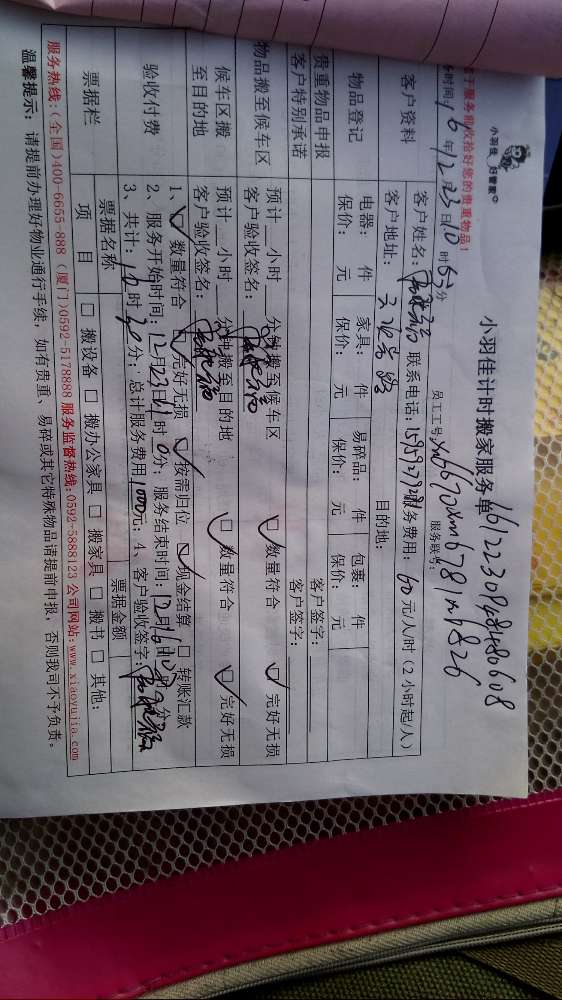 小羽佳
好管家
小羽佳计时搬家服务单
1612230948480608
员工工号: xm6670 xm6781 xm6826
服务联号:
于服务前收拾好您的贵重物品!
时间16年12月23日10时53分
客户资料
客户姓名: 联系电话: 服务费用: 60元/人/时(2小时起/人)
客户地址: 目的地:
物品登记
电器: 件 家具: 件 易碎品: 件 包裹: 件
保价: 元 保价: 元 保价: 元 保价: 元
贵重物品申报 客户签字:
客户特别承诺 客户签字:
物品搬至候车区
预计 小时 分钟搬至候车区 数量符合 完好无损
客户验收签名:
候车区搬至目的地
预计 小时 分钟搬至目的地 数量符合 完好无损
客户验收签名:
验收付费
1、 数量符合 完好无损 按需归位 现金结算 □ 转账汇款
2、服务开始时间: 12月23日11时0分; 服务结束时间:
3、共计: 时 分; 总计服务费用1000元; 4、客户验收签字:
票据栏
票据名称 票据金额
项 目 □ 搬设备 □ 搬办公家具 □ 搬家具 □ 搬书 □ 其他:
服务热线:(全国)400-6655-888 (厦门)0592-5178888 服务监督热线:0592-5888123 公司网站:www.xiaoyujia.com
温馨提示: 请提前办理好物业通行手续, 如有贵重、易碎或其它特殊物品请提前申报, 否则我司不予负责。